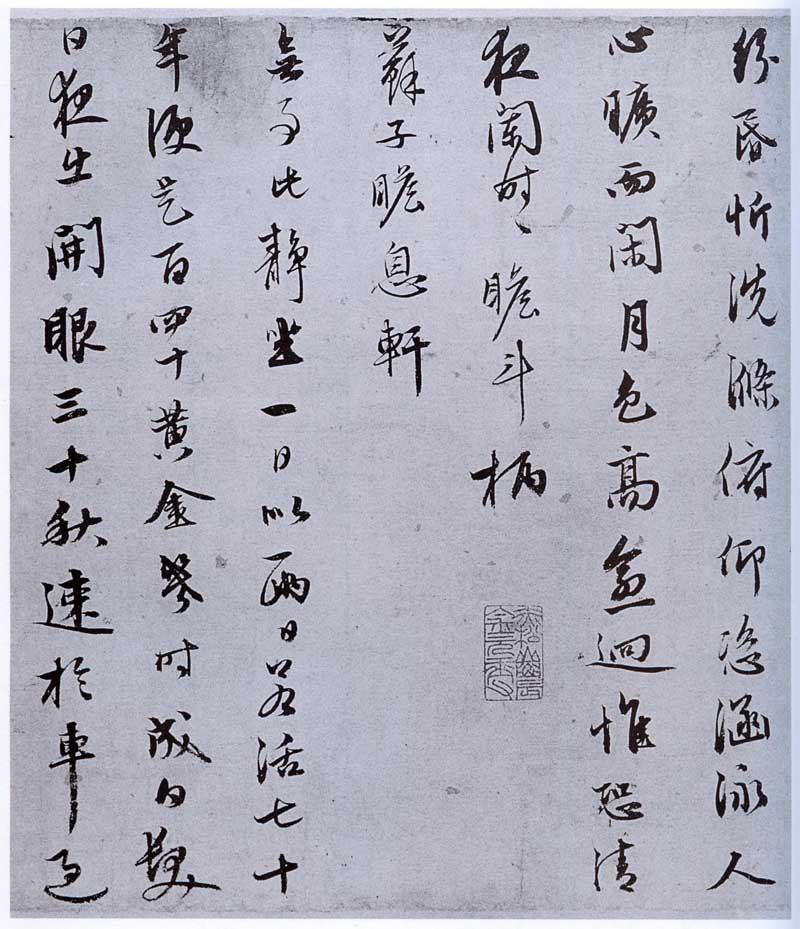 紛昏忻洗滌俯仰恣涵泳人
心曠而閑月色高愈迥惟恐清
夜闌時々瞻斗柄
蘇子瞻息軒
無事此靜坐一日似兩日若活七十
年便是百四十黃金幾時成白髮
日夜出開眼三十秋速於車過